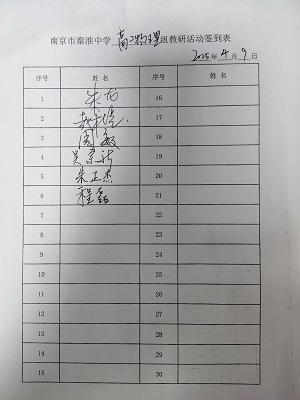 南京市秦淮中学 高二物理 组教研活动签到表
2025年4月9日
序号 姓名 序号 姓名
1 朱龙 16
2 17
3 周敏 18
4 吴 19
5 朱正杰 20
6 程磊 21
7 22
8 23
9 24
10 25
11 26
12 27
13 28
14 29
15 30